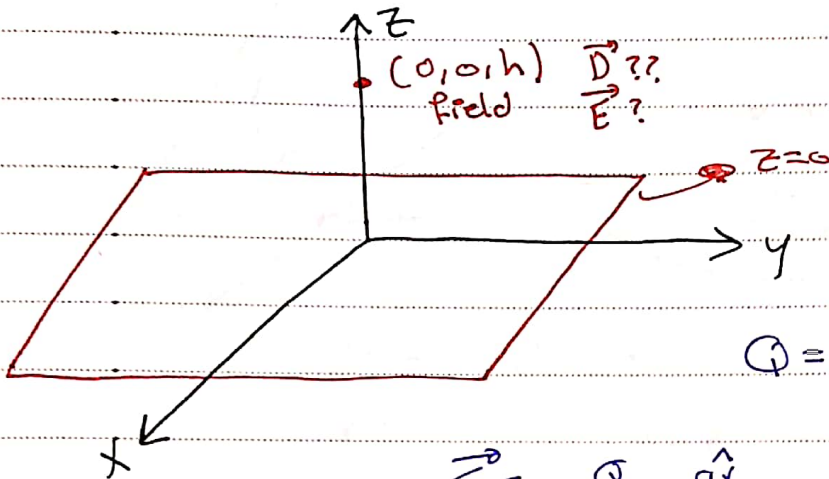 Z
(0,0,h) D ??
field E ?
Z=0
y
Q =
x